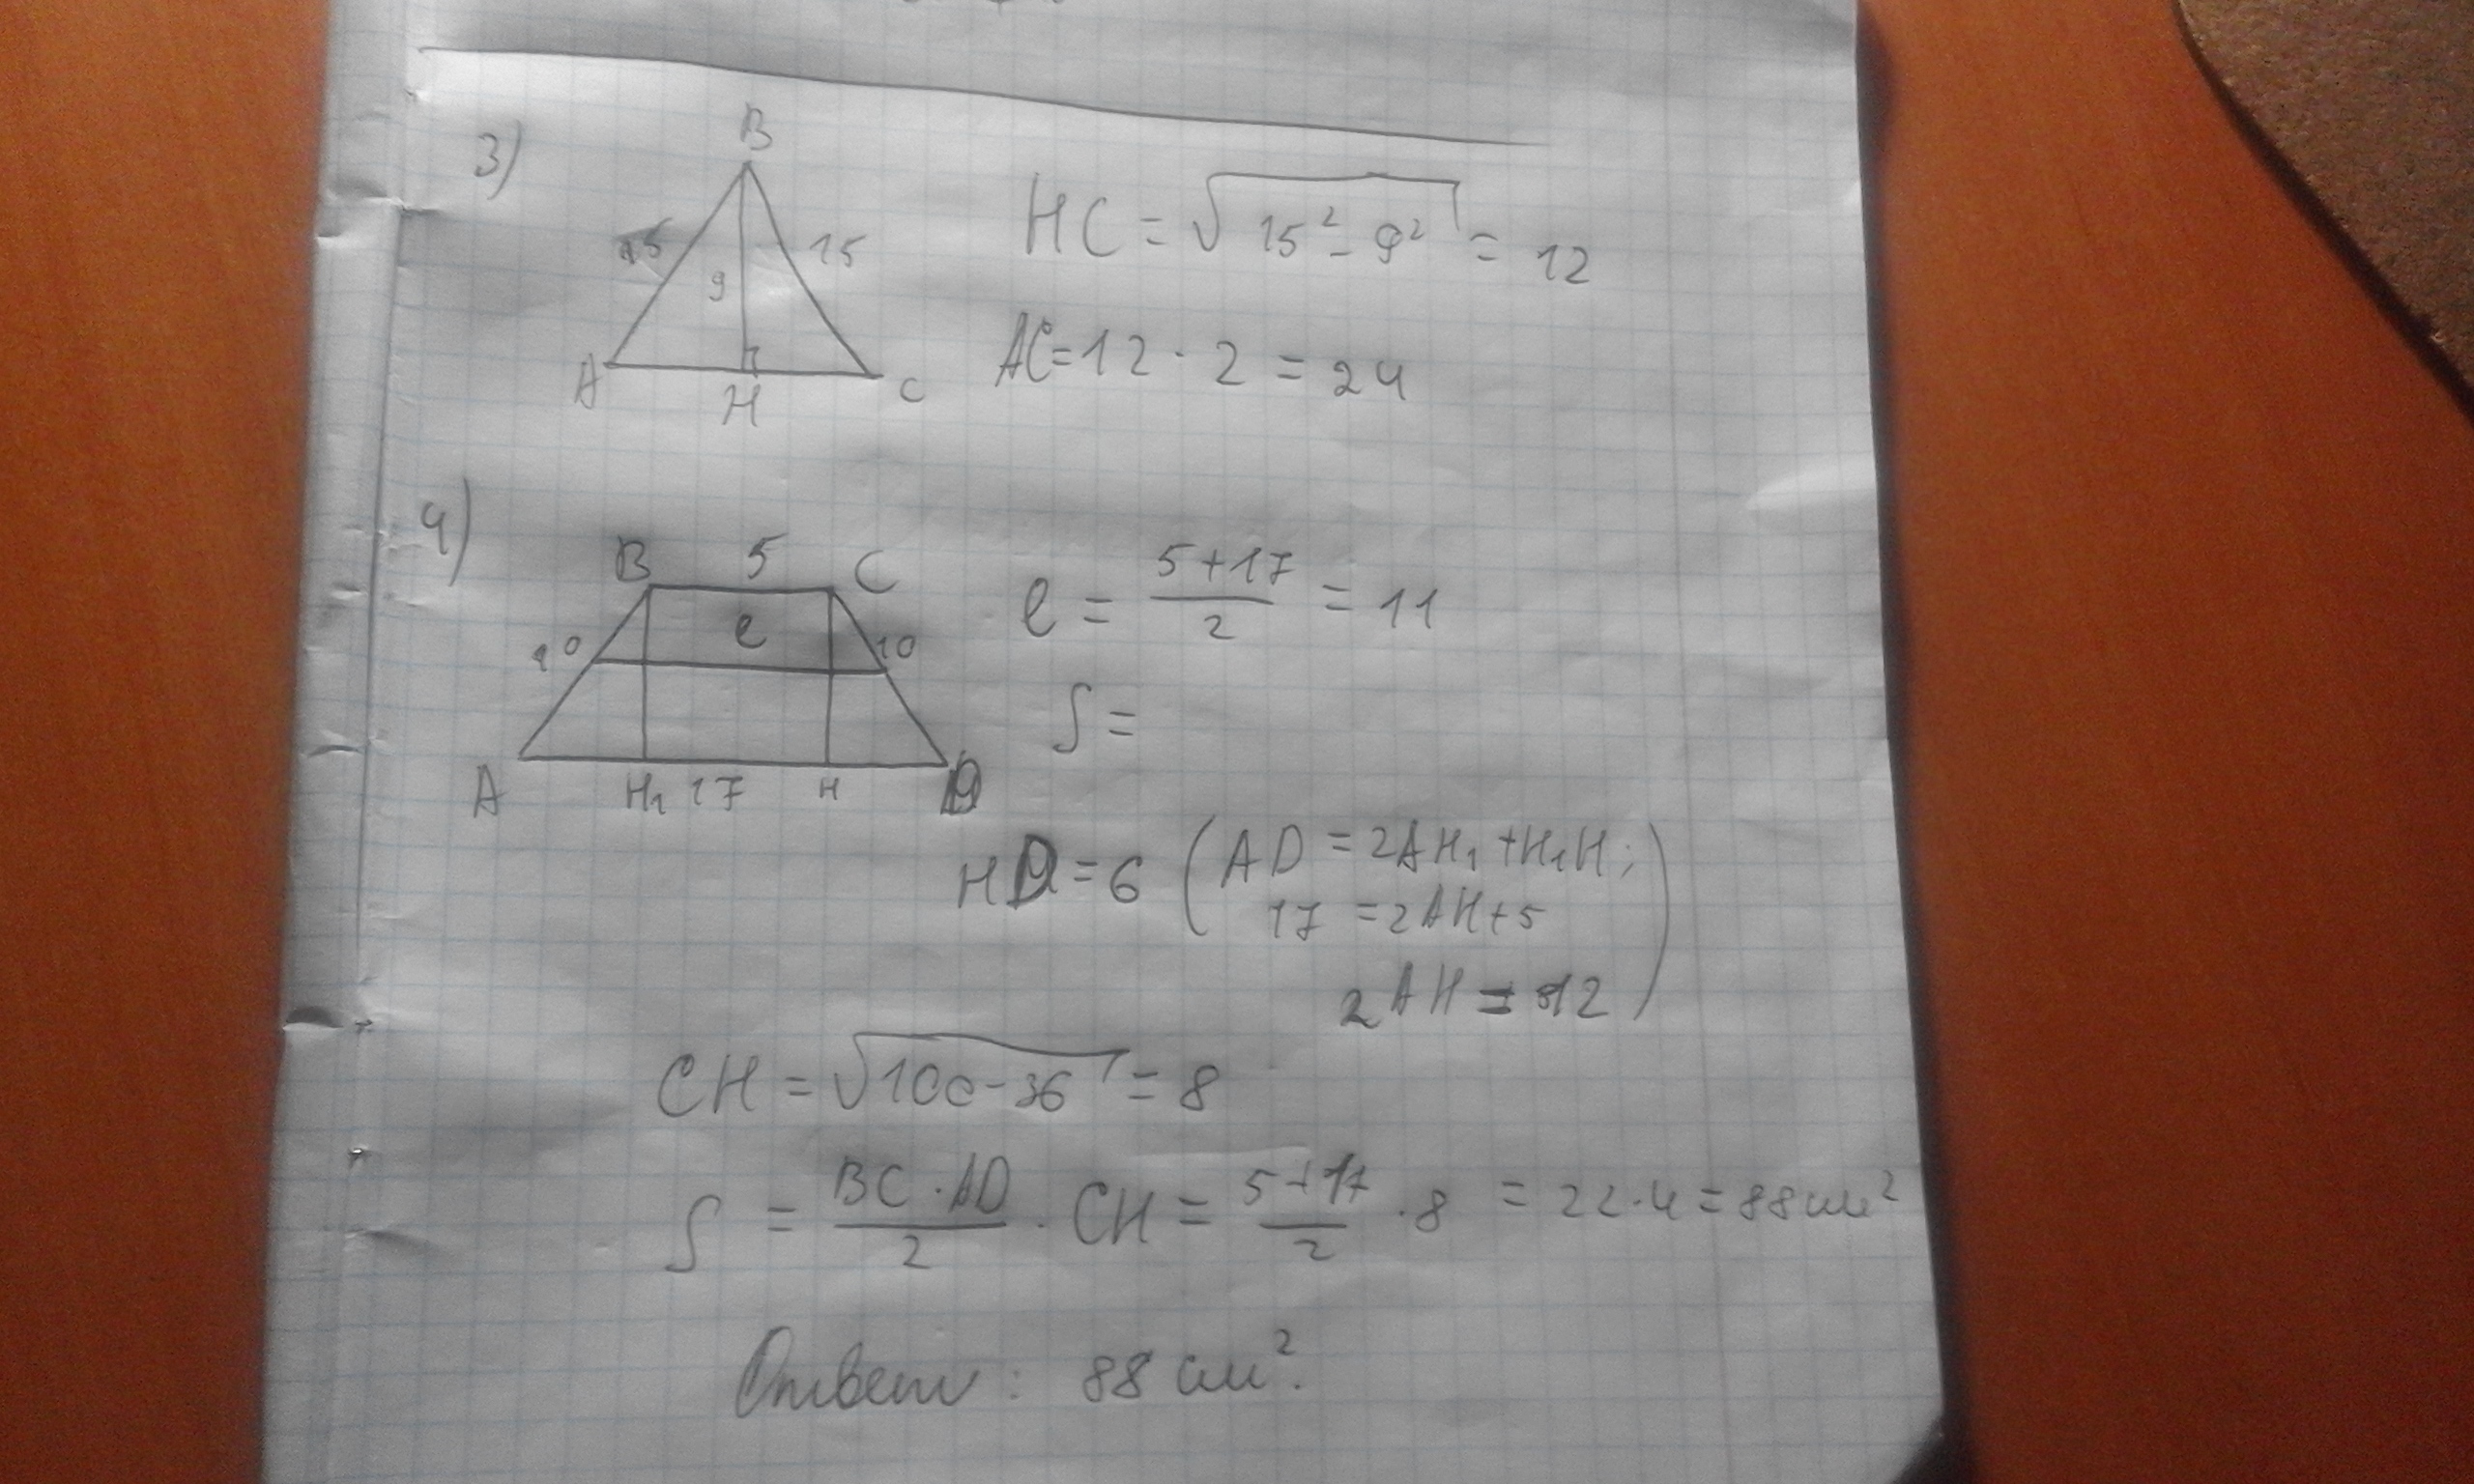 3)
B
15 15
9
A H C
HC = √(15² - 9²) = 12
AC = 12 · 2 = 24
4)
B 5 C
10 ℓ 10
A H₁ 17 H D
ℓ = (5+17)/2 = 11
S =
HD = 6 (AD = 2AH₁ + H₁H;
17 = 2AH + 5
2AH = 12)
CH = √(100-36) = 8
S = (BC · AD)/2 · CH = (5+17)/2 · 8 = 22·4 = 88 см²
Ответ: 88 см².